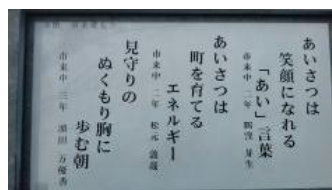 あいさつは
笑顔になれる
「あい」言葉
市来中 二年
あいさつは
町を育てる
エネルギー
市来中 二年 松元
見守りの
ぬくもり胸に
歩む朝
市来中 三年 濵田 万優香